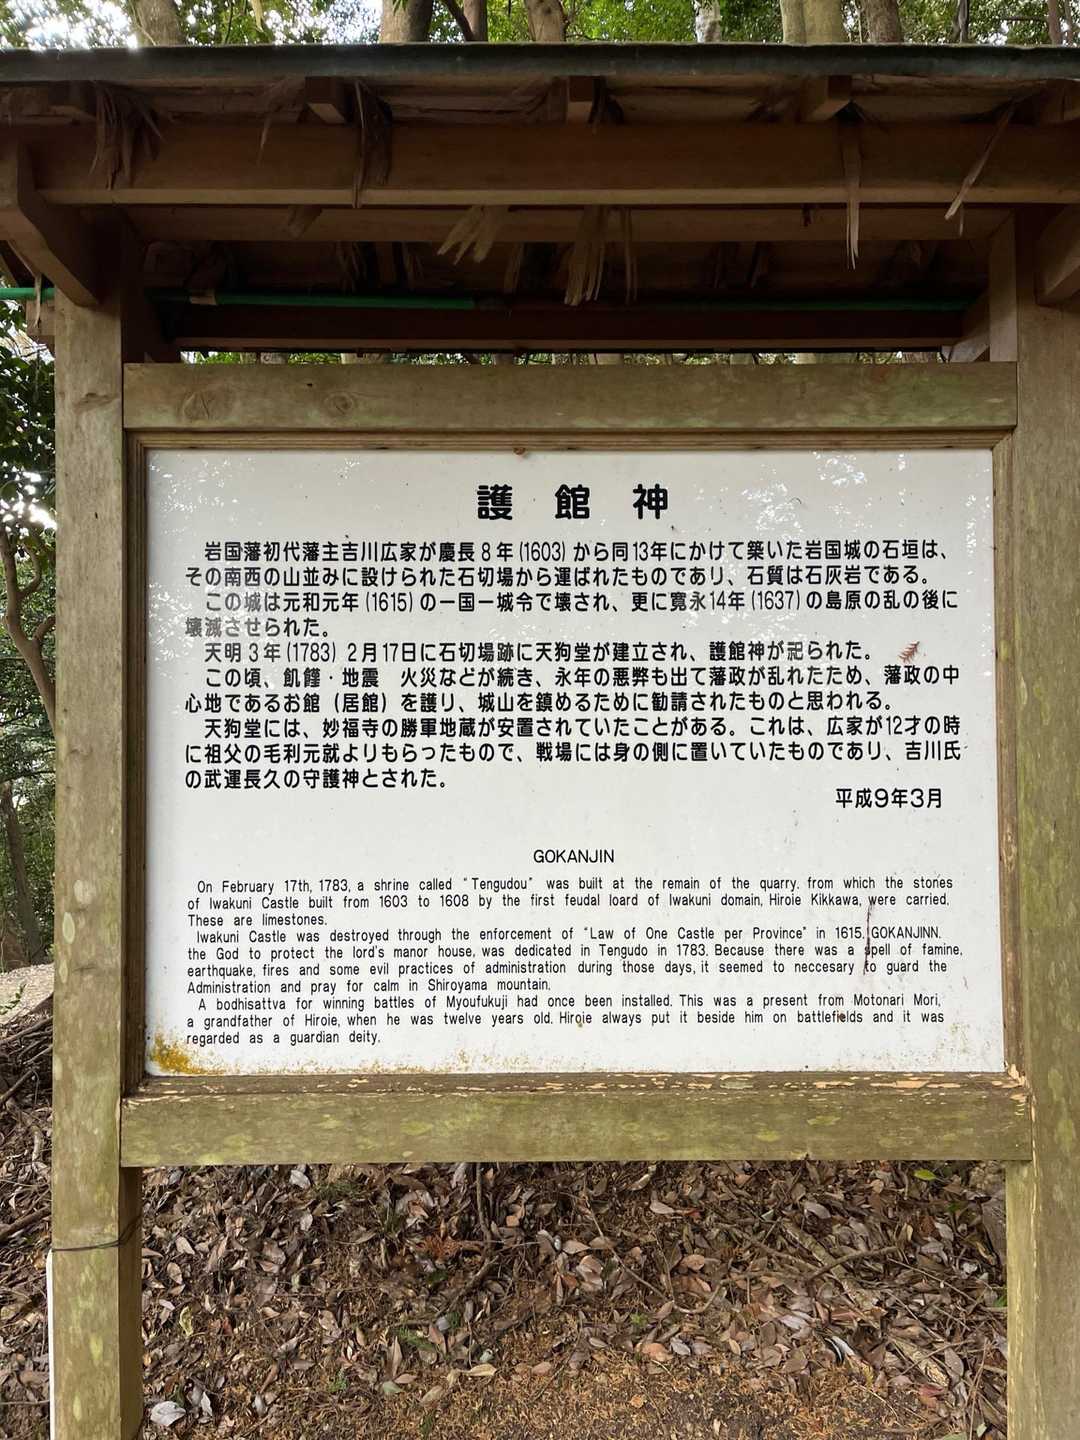 護館神
岩国藩初代藩主吉川広家が慶長8年(1603)から同13年にかけて築いた岩国城の石垣は、
その南西の山並みに設けられた石切場から運ばれたものであり、石質は石灰岩である。
この城は元和元年(1615)の一国一城令で壊され、更に寛永14年(1637)の島原の乱の後に
壊滅させられた。
天明3年(1783)2月17日に石切場跡に天狗堂が建立され、護館神が祀られた。
この頃、飢饉・地震　火災などが続き、永年の悪弊も出て藩政が乱れたため、藩政の中
心地であるお館（居館）を護り、城山を鎮めるために勧請されたものと思われる。
天狗堂には、妙福寺の勝軍地蔵が安置されていたことがある。これは、広家が12才の時
に祖父の毛利元就よりもらったもので、戦場には身の側に置いていたものであり、吉川氏
の武運長久の守護神とされた。
平成9年3月
GOKANJIN
On February 17th, 1783, a shrine called “Tengudou” was built at the remain of the quarry. from which the stones
of Iwakuni Castle built from 1603 to 1608 by the first feudal loard of Iwakuni domain, Hiroie Kikkawa, were carried.
These are limestones.
Iwakuni Castle was destroyed through the enforcement of “Law of One Castle per Province” in 1615. GOKANJINN.
the God to protect the lord's manor house, was dedicated in Tengudo in 1783. Because there was a spell of famine,
earthquake, fires and some evil practices of administration during those days, it seemed to neccesary to guard the
Administration and pray for calm in Shiroyama mountain.
A bodhisattva for winning battles of Myoufukuji had once been installed. This was a present from Motonari Mori,
a grandfather of Hiroie, when he was twelve years old. Hiroie always put it beside him on battlefields and it was
regarded as a guardian deity.